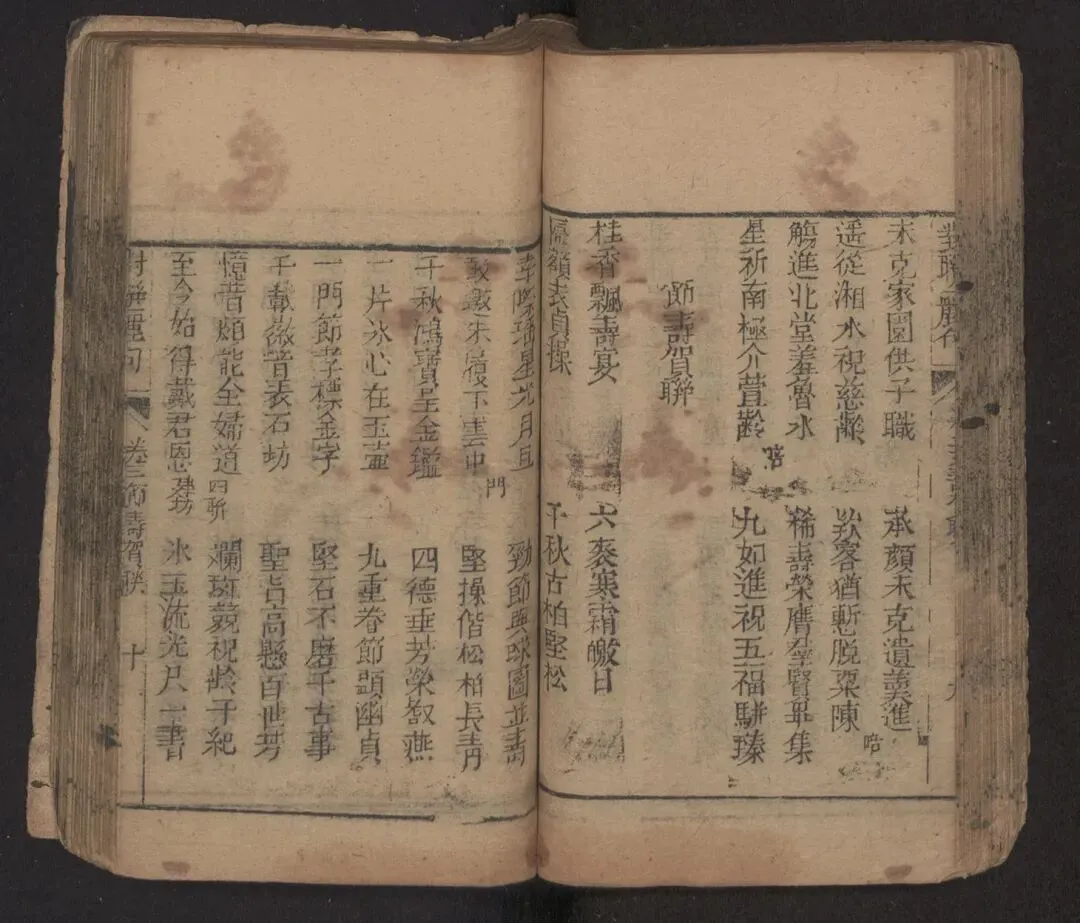 未克家園供子職 承顏未克遺羹進
遥從湘水祝慈齡 猶慙脫粟陳
觴進北堂羞魯水 稀壽榮膺羣賢畢集
星祈南極介萱齡 九如進祝五福駢臻
節壽賀聯
桂香飄壽宴 六袠寒霜皦日
匾額表貞操 千秋古柏堅松
星光月且 勁節與球圖並壽
千秋鴻寶呈金鑑 堅操偕松柏長青
一片冰心在玉壺 四德垂芳榮叙燕
一門節孝標金字 九重眷節顕幽貞
千載徽音表石坊 堅石不磨千古事
憶昔頗能全婦道 四聯 聖旨高懸百世芳
至今始得戴君恩 建坊 斕斑競祝齡千紀
冰玉流光尺一書
對聯麗句 卷三 節壽賀聯 十